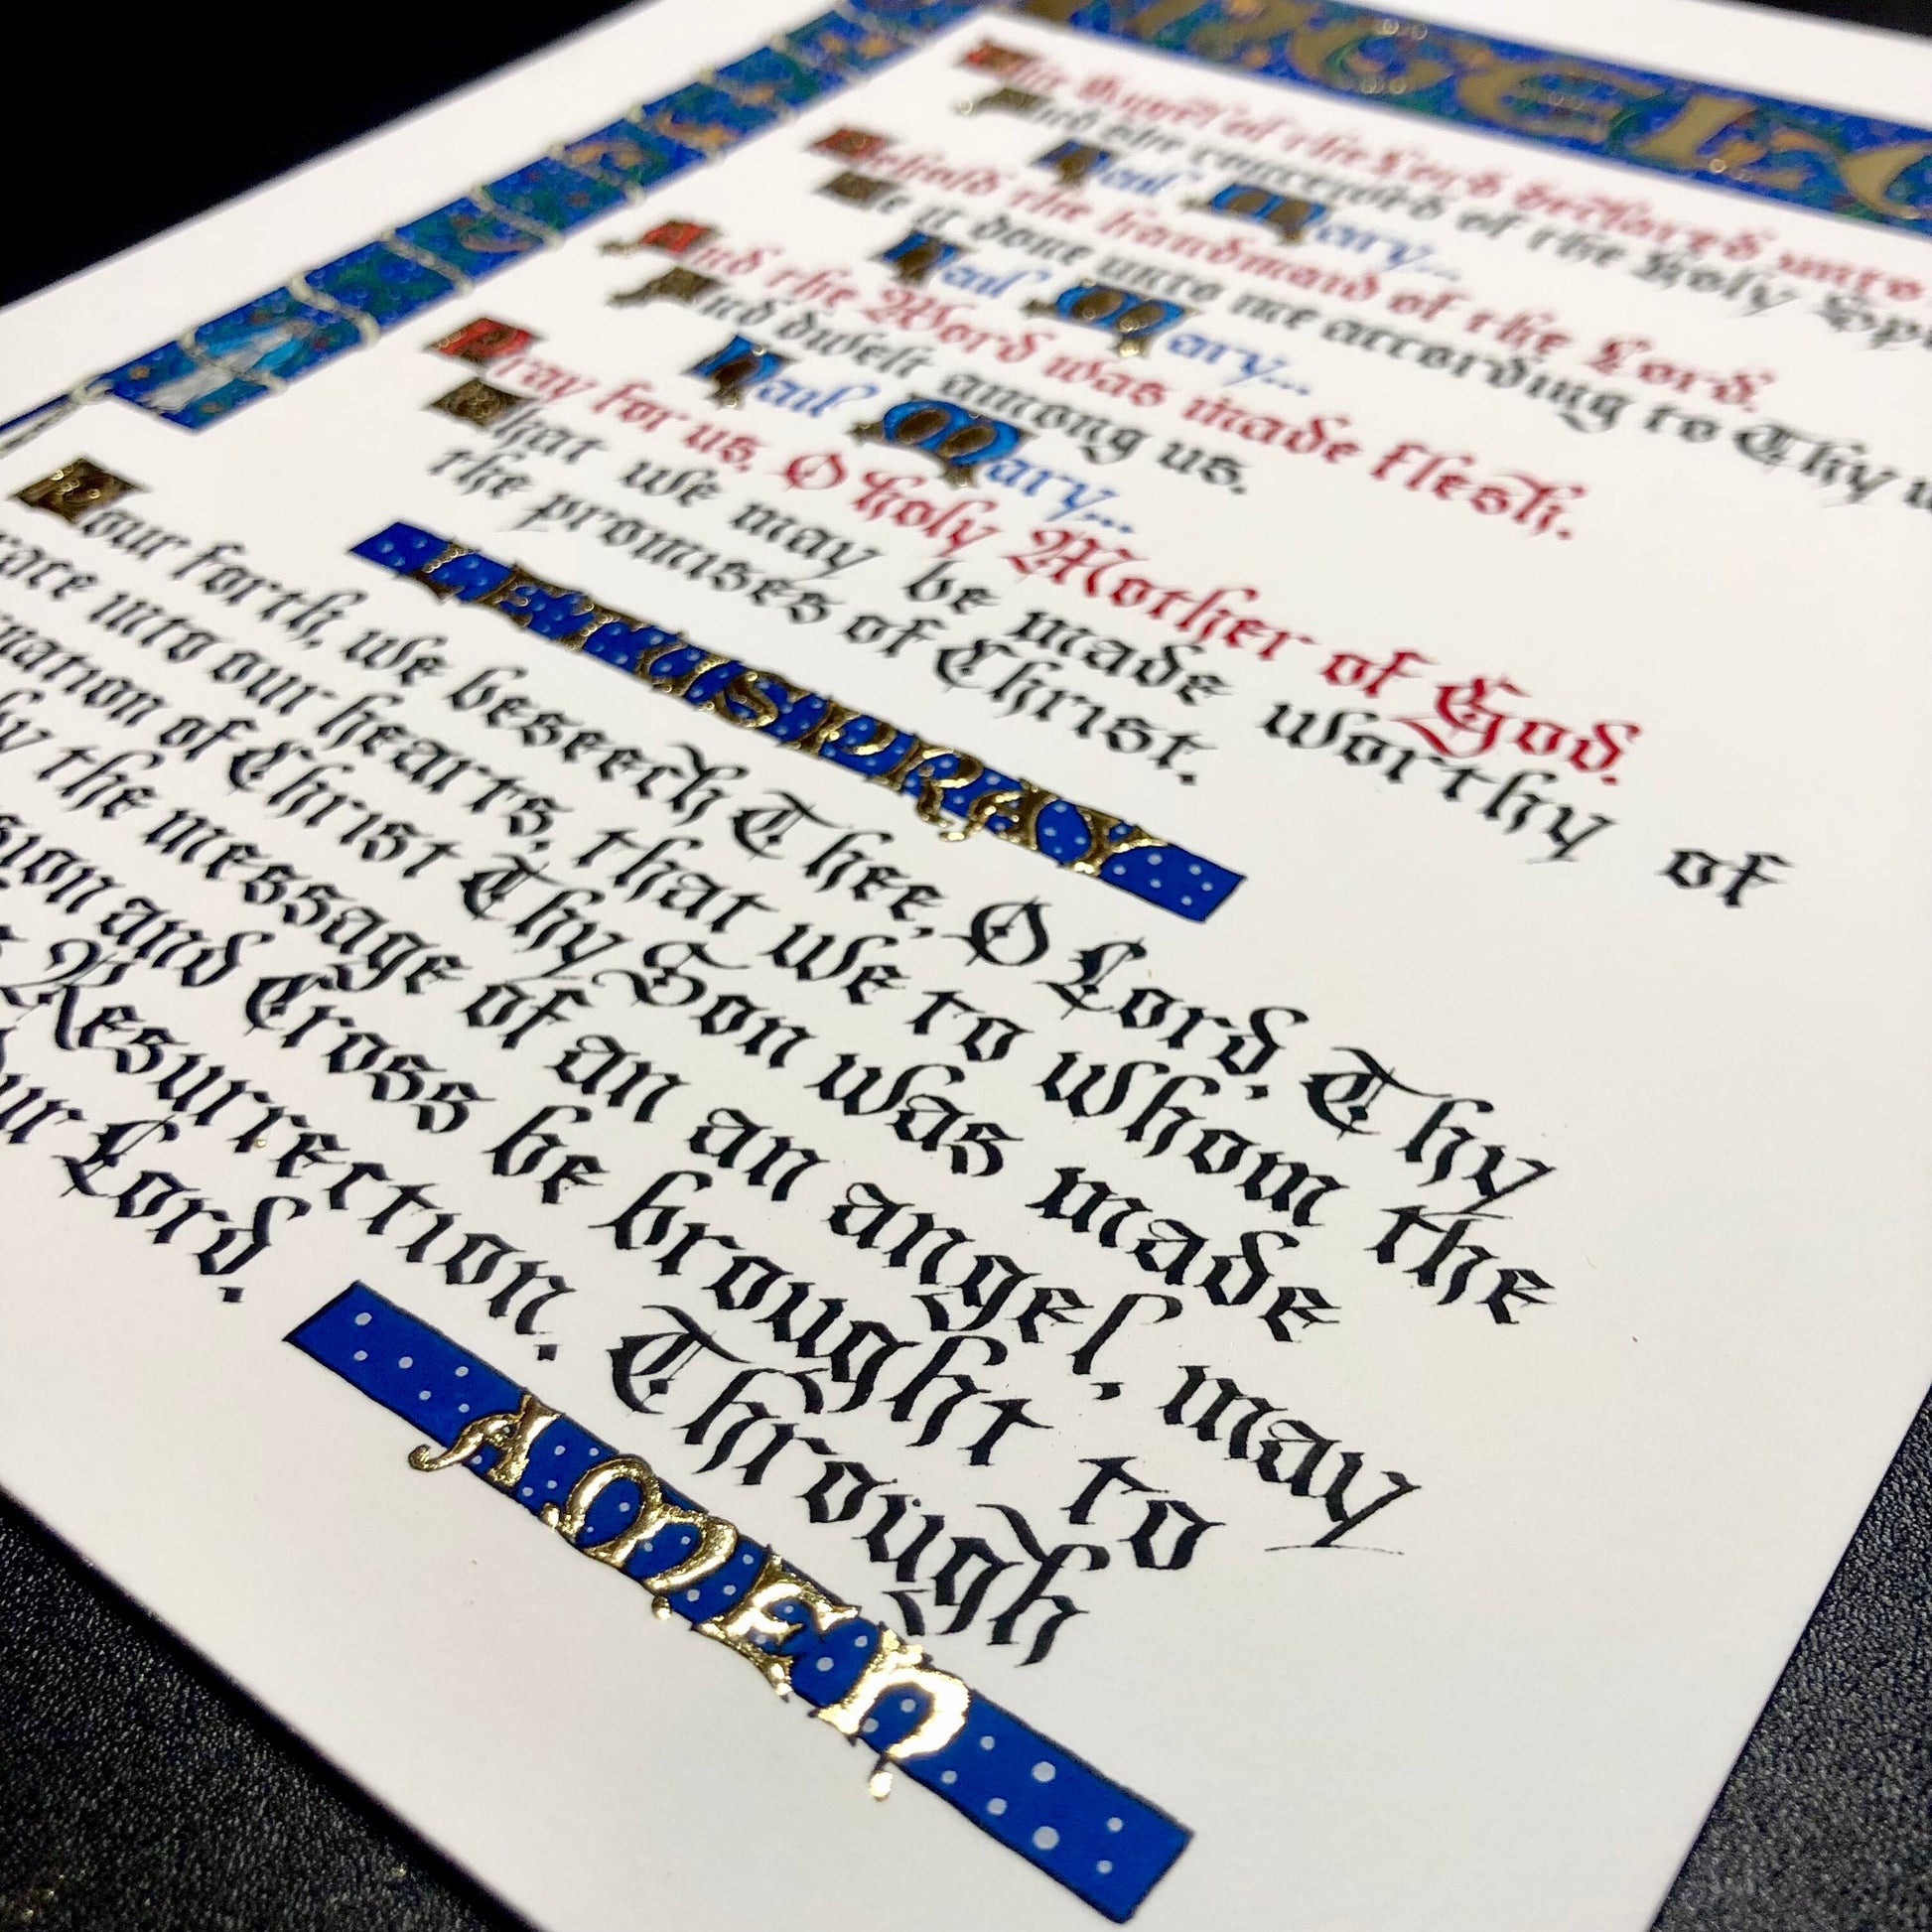 NGELU
The Angel of the Lord declared unto
And she conceived of the Holy Spi
Hail Mary...
Behold the handmaid of the Lord.
Be it done unto me according to Thy w
Hail Mary...
And the Word was made flesh.
And dwelt among us.
Hail Mary...
Pray for us, O holy Mother of God.
That we may be made worthy of
the promises of Christ.
LET US PRAY
Pour forth, we beseech Thee, O Lord, Thy
race into our hearts, that we to whom the
rnation of Christ Thy Son was made
by the message of an angel, may
sion and Cross be brought to
Resurrection. Through
our Lord.
AMEN